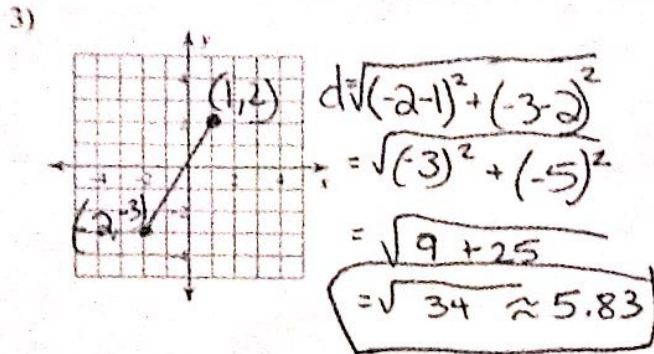 3)
y
(1,2)
(-2,-3)
-4
2
4
x
d=√(-2-1)² + (-3-2)²
= √(-3)² + (-5)²
= √9 + 25
= √34 ≈ 5.83